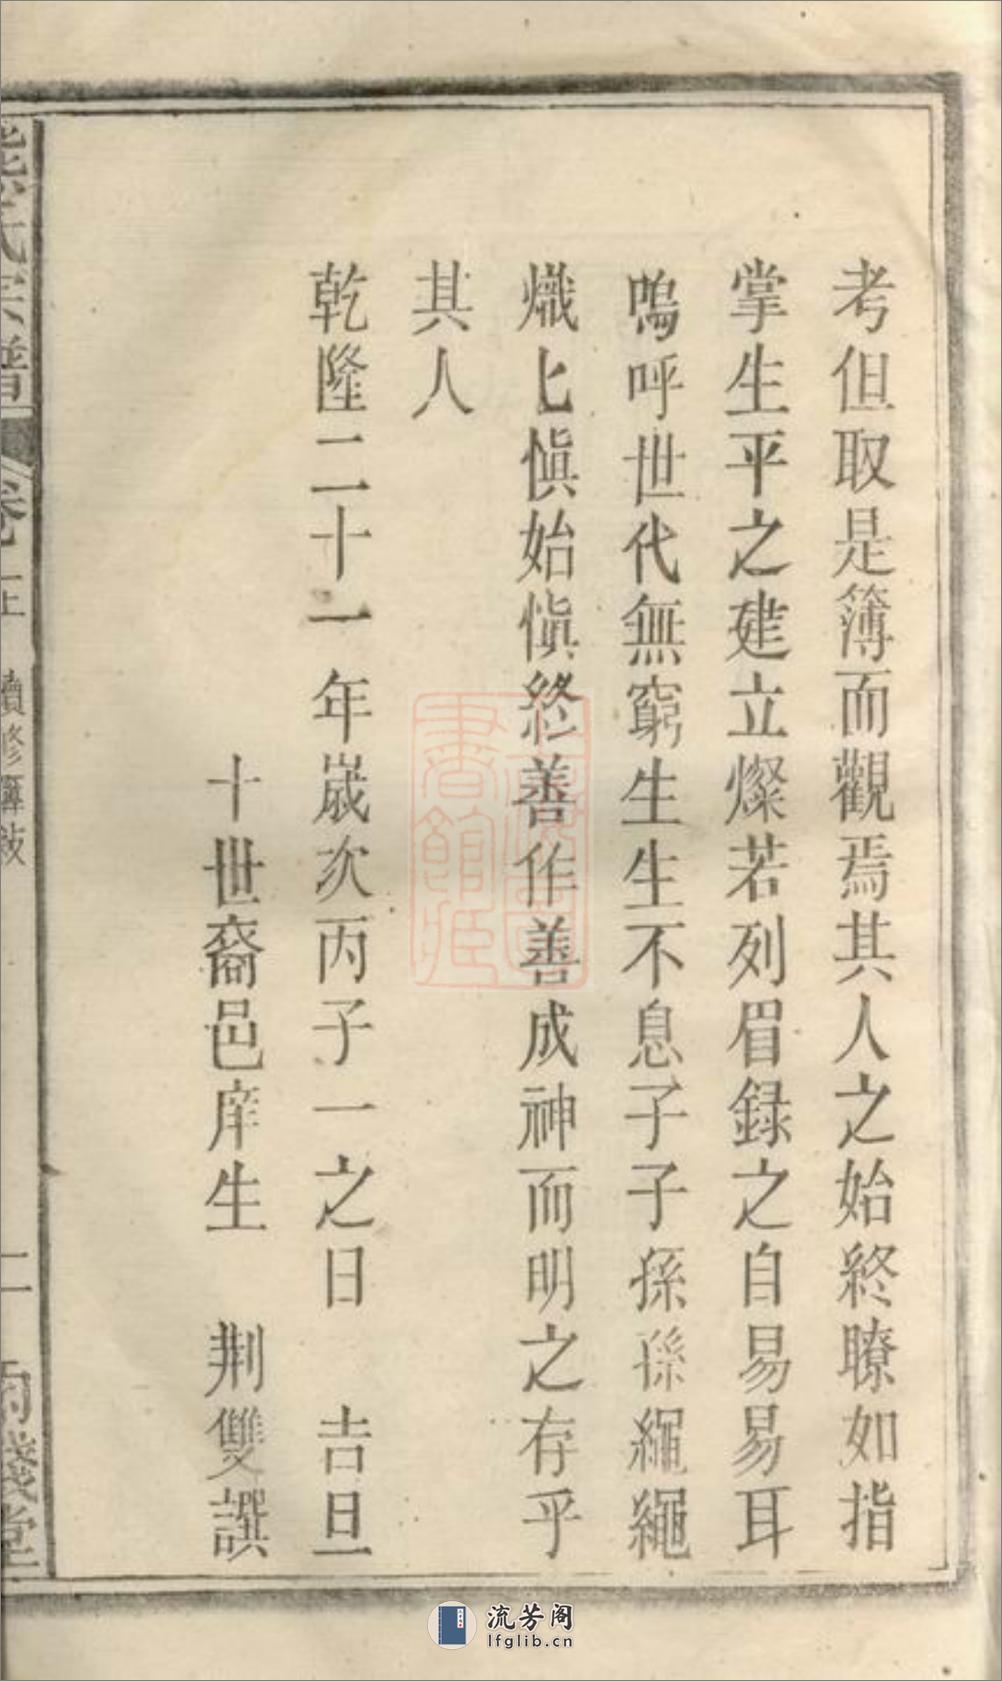 考但取是簿而觀焉其人之始終瞭如指
掌生平之建立燦若列眉録之自易易耳
嗚呼世代無窮生生不息子子孫孫繩繩
熾匕愼始愼終善作善成神而明之存乎
其人
乾隆二十一年歲次丙子一之日 吉旦
十世裔邑庠生 荆雙譔
熊氏宗譜 卷一上 續修譜敍 二 雨錢堂
書館藏
流芳阁
lfglib.cn